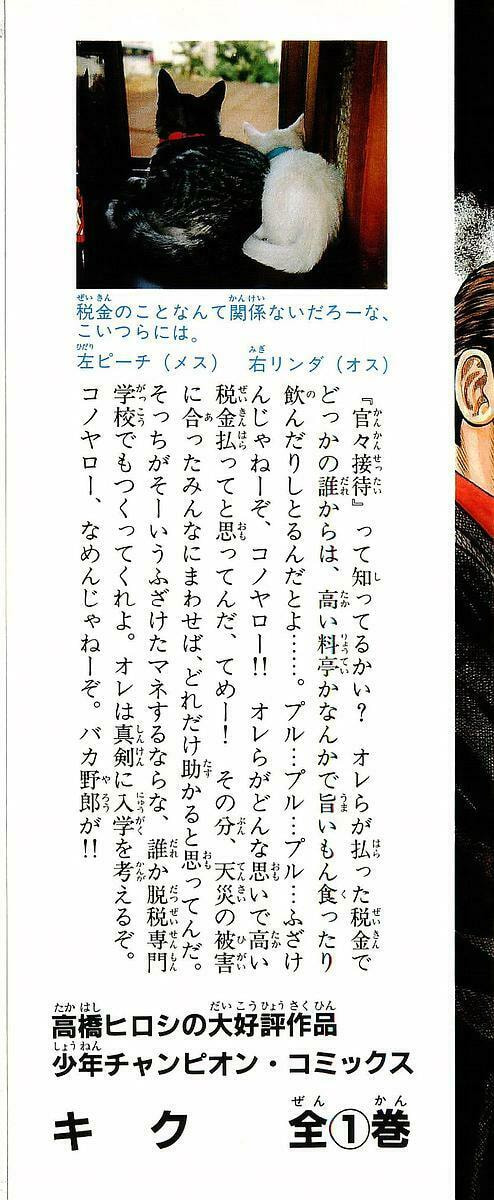 税金のことなんて関係ないだろーな、
こいつらには。
左ピーチ（メス）　右リンダ（オス）
『官々接待』って知ってるかい？　オレらが払った税金で
どっかの誰からは、高い料亭かなんかで旨いもん食ったり
飲んだりしとるんだとよ……。プル…プル…プル…ふざけ
んじゃねーぞ、コノヤロー!!　オレらがどんな思いで高い
税金払ってと思ってんだ、てめー！　その分、天災の被害
に合ったみんなにまわせば、どれだけ助かると思ってんだ。
そっちがそーいうふざけたマネするならな、誰か脱税専門
学校でもつくってくれよ。オレは真剣に入学を考えるぞ。
コノヤロー、なめんじゃねーぞ。バカ野郎が!!
高橋ヒロシの大好評作品
少年チャンピオン・コミックス
キク　全①巻